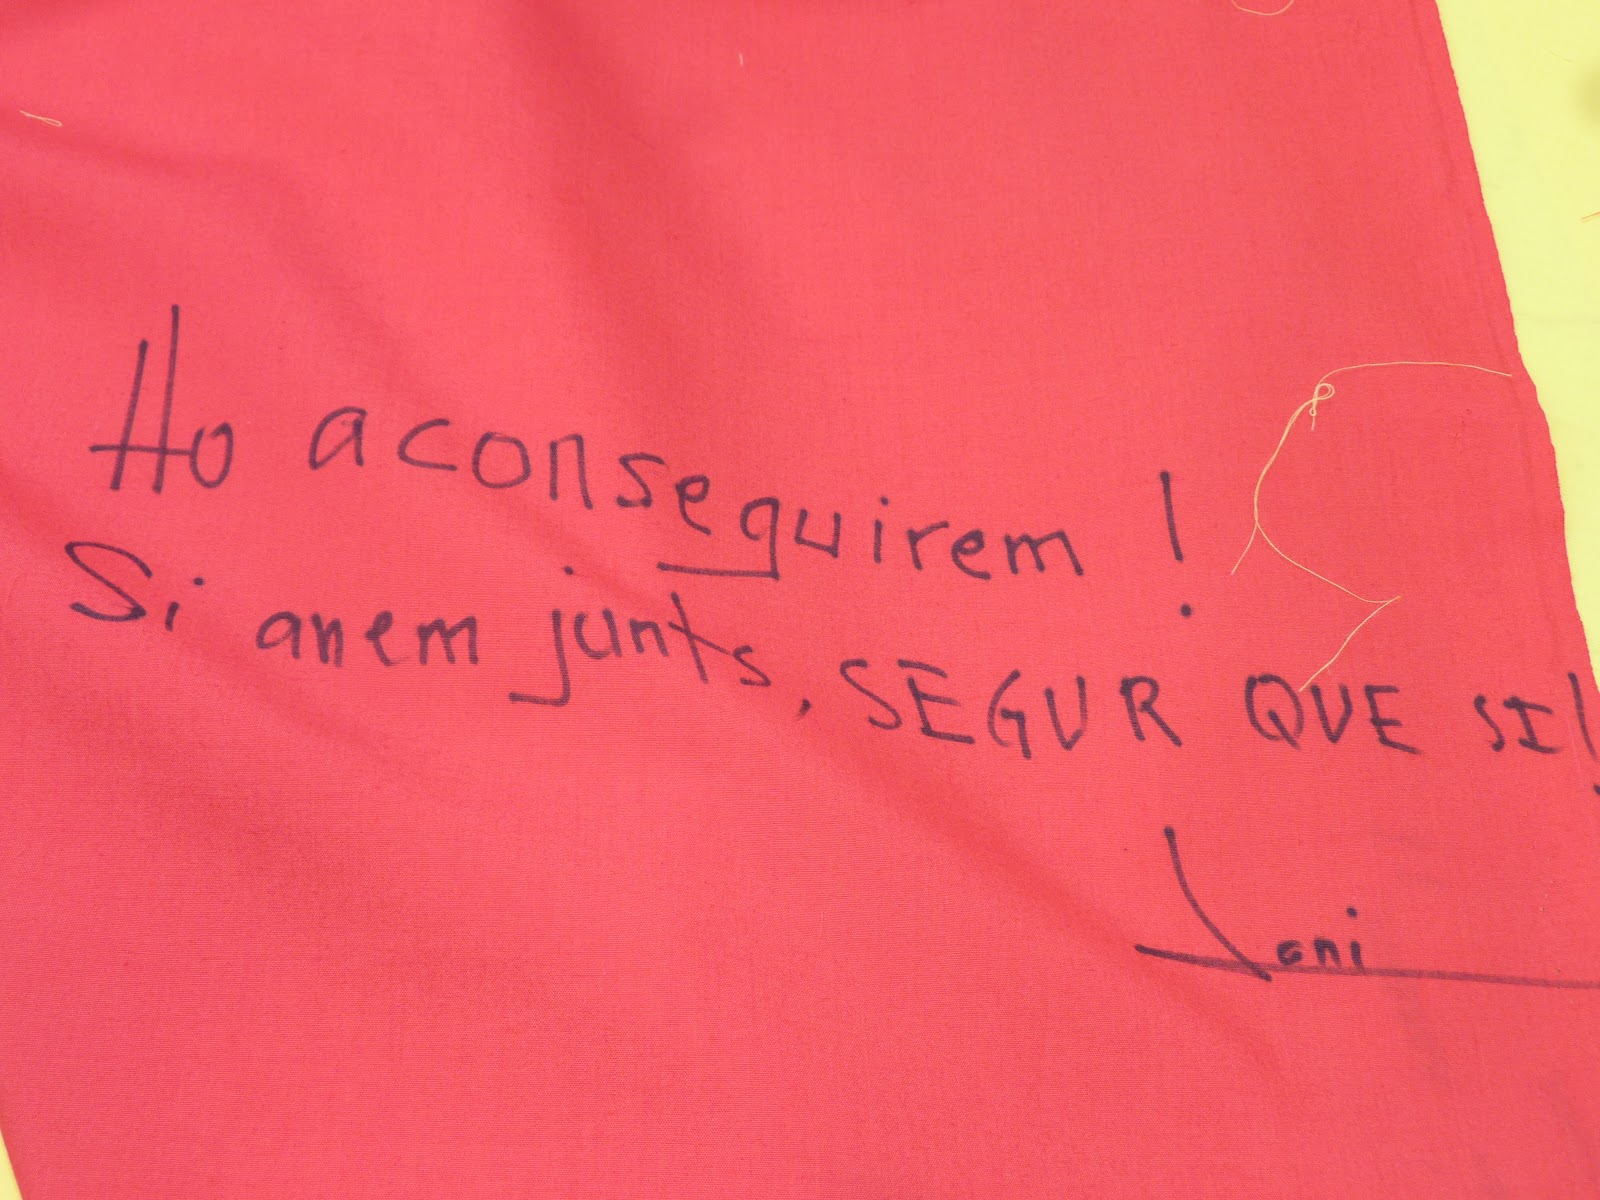 Ho aconseguirem !
Si anem junts, SEGUR QUE SI!